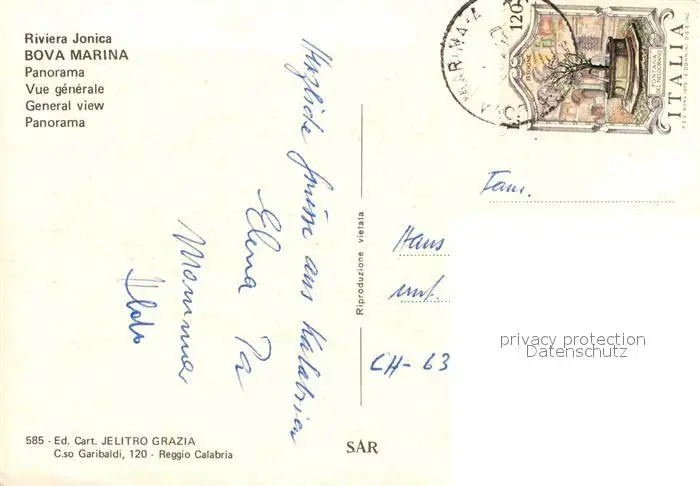 Riviera Jonica
BOVA MARINA
Panorama
Vue générale
General view
Panorama
Herzliche Grüsse aus Kalabrien
Elena Pa
Mamma
Aldo
Riproduzione vietata
120
ITALIA
FONTANA
Fam.
Hans
CH- 63
privacy protection
Datenschutz
585 - Ed. Cart. JELITRO GRAZIA
C.so Garibaldi, 120 - Reggio Calabria
SAR